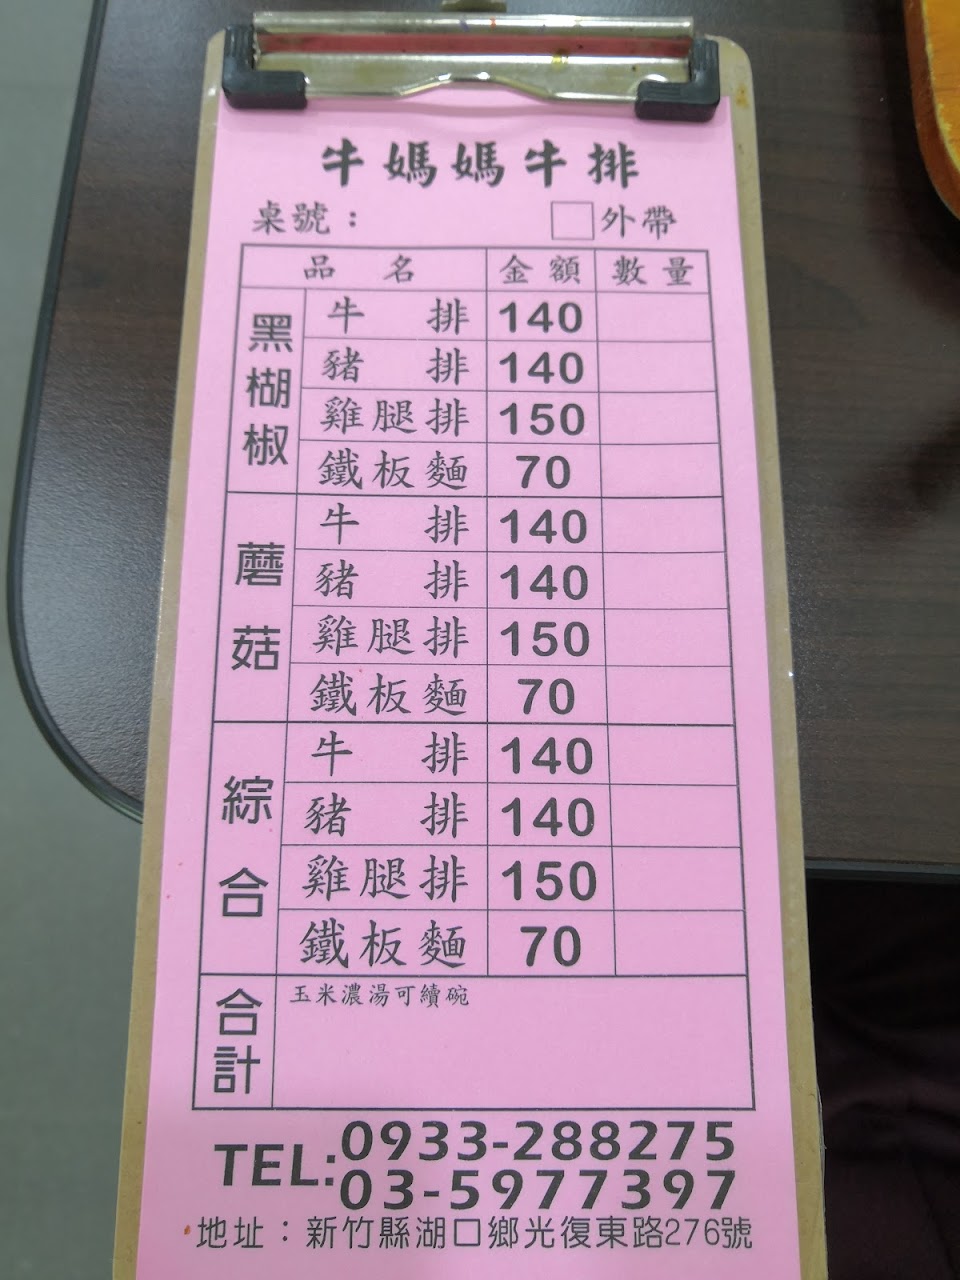 牛媽媽牛排
桌號： □外帶
品名 金額 數量
黑楜椒
牛排 140
豬排 140
雞腿排 150
鐵板麵 70
蘑菇
牛排 140
豬排 140
雞腿排 150
鐵板麵 70
綜合
牛排 140
豬排 140
雞腿排 150
鐵板麵 70
合計
玉米濃湯可續碗
TEL:0933-288275
03-5977397
地址：新竹縣湖口鄉光復東路276號